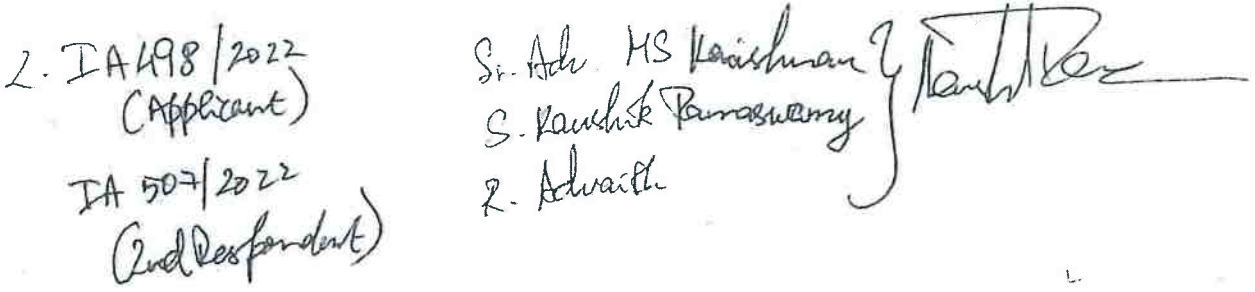 2. IA 498/2022
(Applicant)
IA 507/2022
(2nd Respondent)
Sr. Adv MS Krishnan
S. Kaushik Ramaswamy
R. Advaith